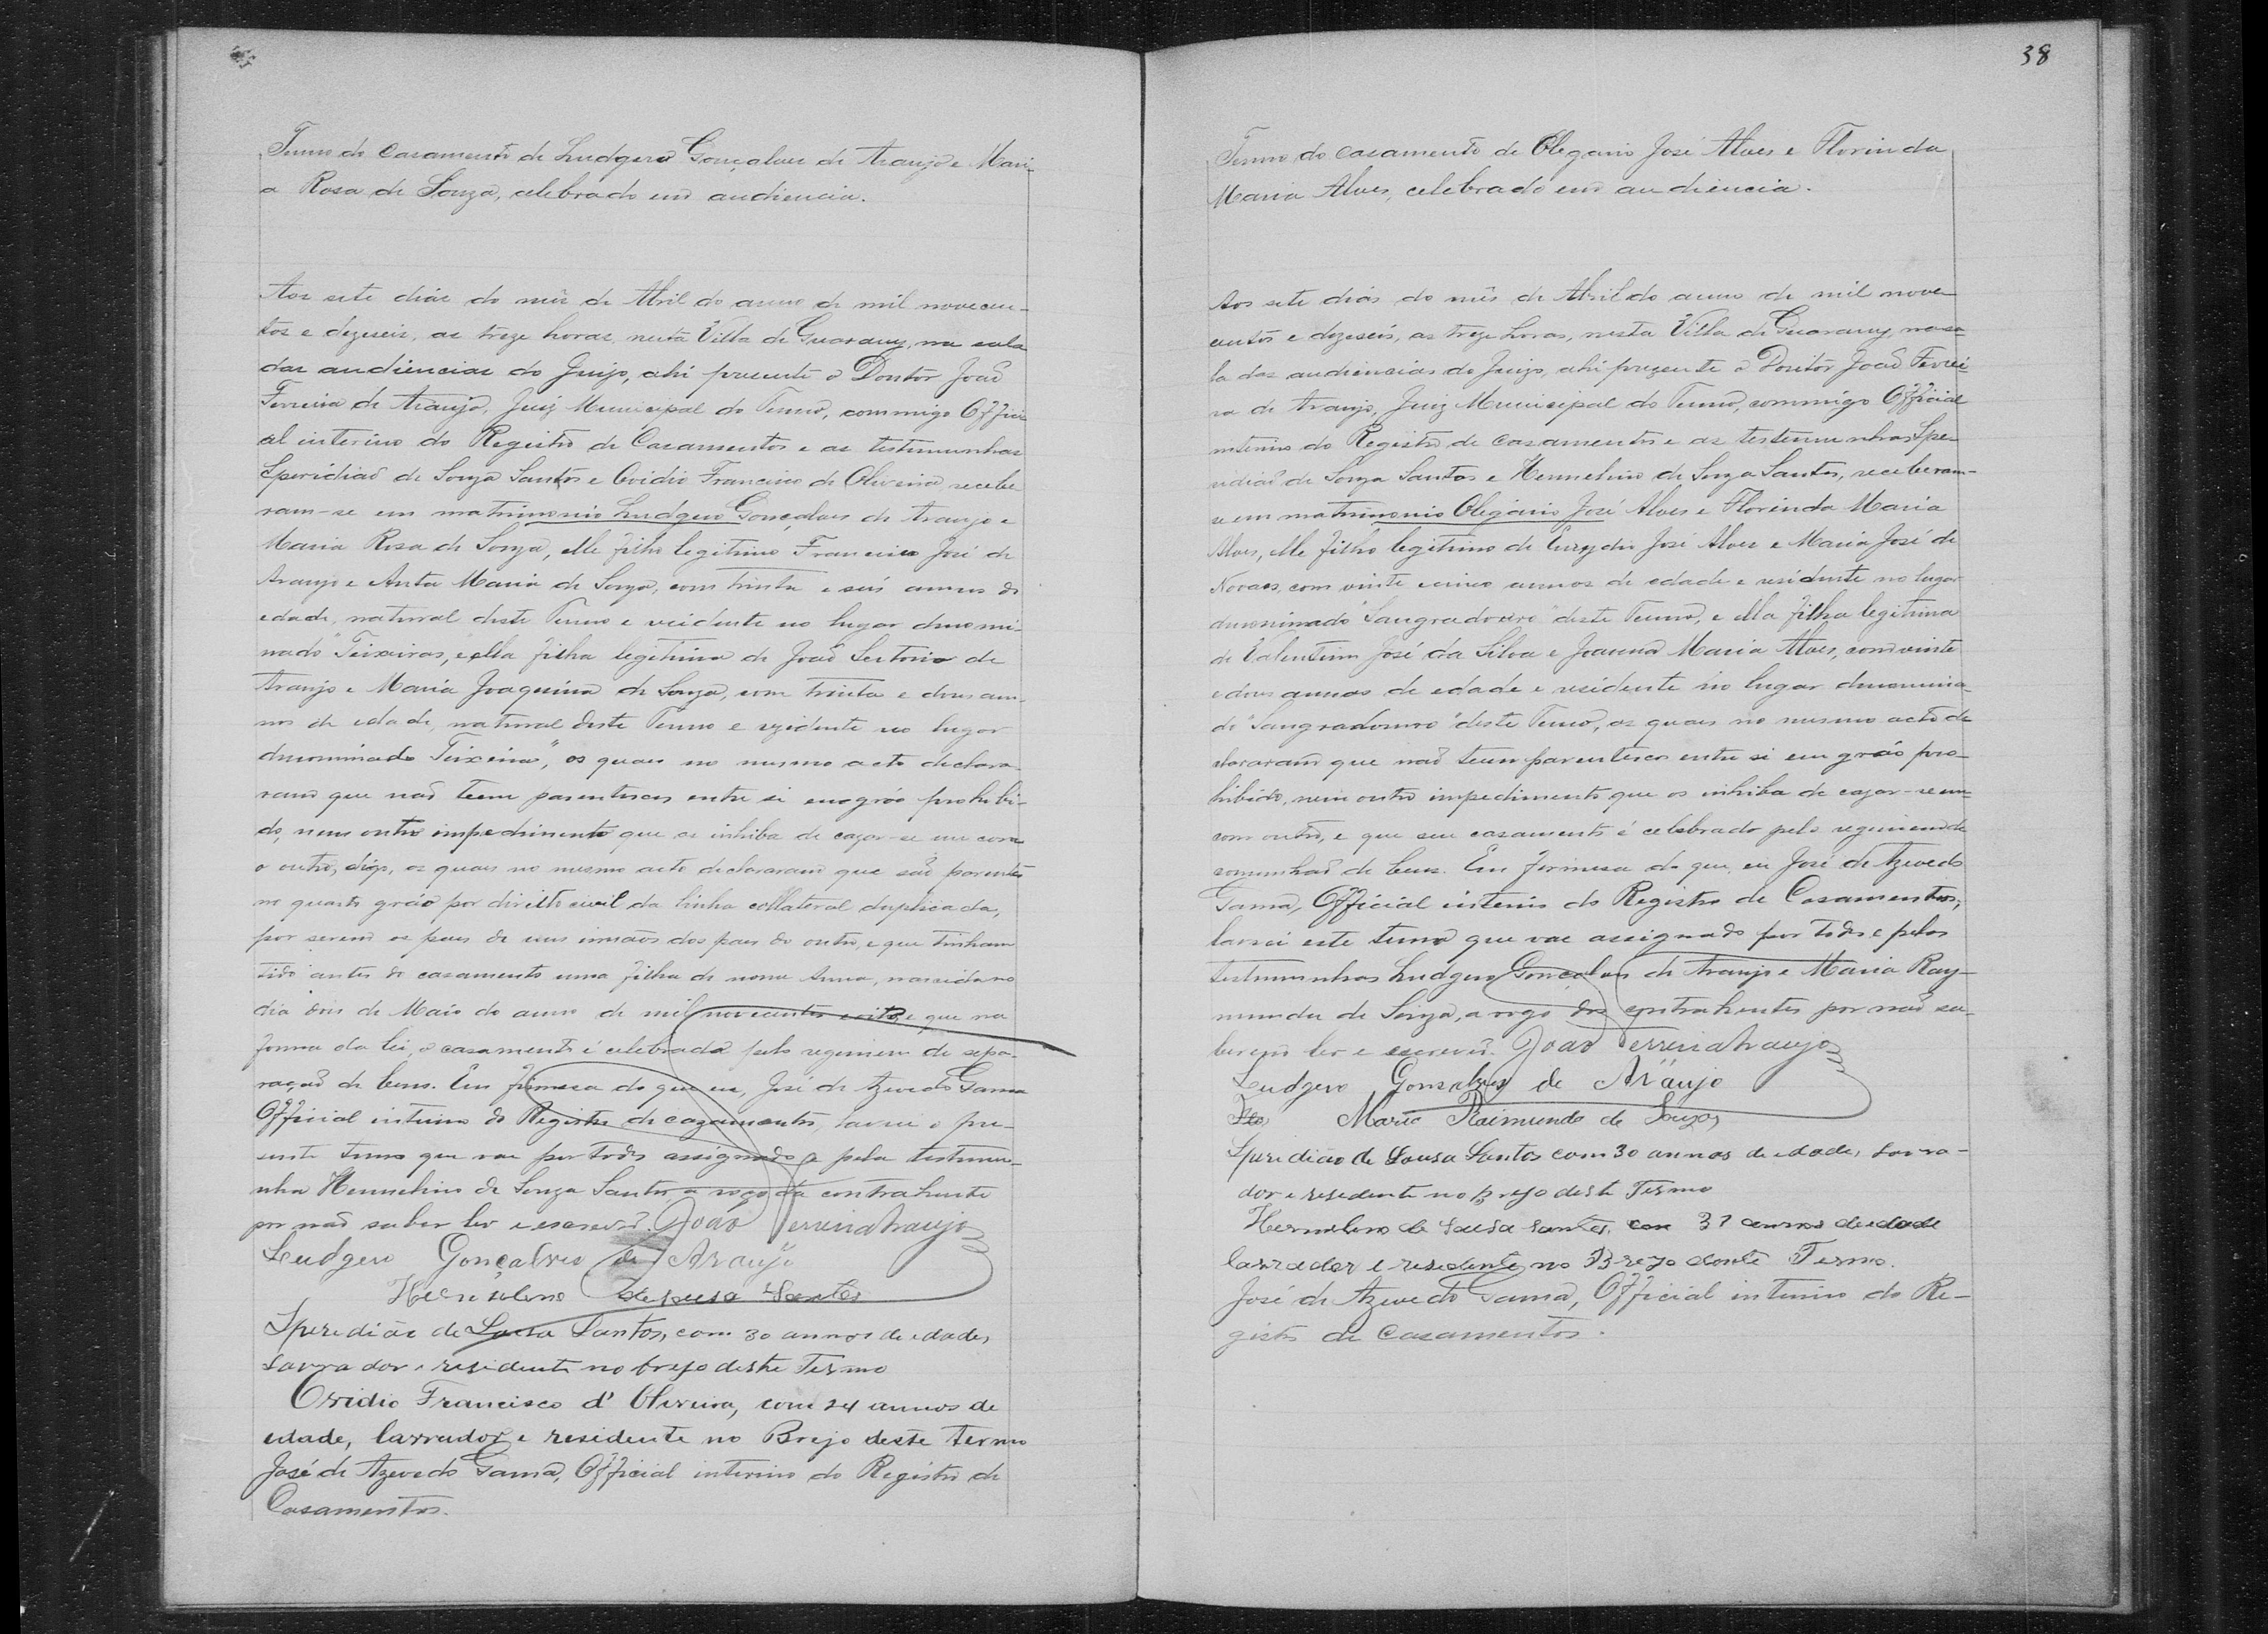 Termo do casamento de Ludgero Gonçalves de Araujo e Mari-
a Rosa de Souza, celebrado em audiencia.
Aos sete dias do mês de Abril do anno de mil novecen-
tos e dezeseis, as treze horas, nesta Villa de Guarany, na sala
das audiencias do Juizo, ahi presente o Doutor João
Ferreira de Araujo, Juiz Municipal do Termo, commigo Offici
al interino do Registro de Casamentos e as testemunhas
Speridião de Souza Santos e Ovidio Francisco de Oliveira, recebe
ram-se em matrimonio Ludgero Gonçalves de Araujo e
Maria Rosa de Souza, elle filho legitimo Francisco José de
Araujo e Anta Maria de Souza, com trinta e seis annos de
edade, natural deste Termo e residente no lugar denomi-
nado "Teixeiras," e ella filha legitima de João Sertorio de
Araujo e Maria Joaquina de Souza, com trinta e dous an-
nos de edade, natural deste Termo e rezidente no lugar
denominado "Teixeira", os quaes no mesmo acto declara-
ram que não teem parentesco entre si em gráo prohibi-
do, nem outro impedimento que os inhiba de cazar-se um com
o outro, digo, os quaes no mesmo acto declararam que são parentes
no quarto gráo por direito civil da linha collateral duplicada,
por serem os paes de uns irmãos dos paes do outro, e que tinham
tido antes do casamento uma filha de nome Anna, nascida no
dia dois de Maio do anno de mil novecentos e oito, e que na
forma da lei, o casamento é celebrado pelo regimem de sepa-
ração de bens. Em firmesa do que eu, José de Azevedo Gama
Official interino do Registro de cazamentos, lavrei o pre-
sente termo que vae por todos assignado e pela testemu-
nha Hermelino de Souza Santos, a rogo da contrahente
por não saber ler e escrever. João Ferreira Araujo
Ludgero Gonçalves de Araujo
Hermelino de Sousa Santos
Speredião de Sousa Santos, com 30 annos de edade,
Lavrador e residente no brejo deste Termo
Ovidio Francisco d' Oliveira, com 24 annos de
edade, lavrador e residente no Brejo deste termo
José de Azevedo Gama, Official interino do Registro de
Casamentos.
38
Termo do casamento de Olegario José Alves e Florinda
Maria Alves, celebrado em audiencia.
Aos sete dias do mês de Abril do anno de mil nove-
centos e dezeseis, as treze horas, nesta Villa de Guarany, na sa-
la das audiencias do Juizo, ahi prezente o Doutor João Ferrei-
ra de Araujo, Juiz Municipal do Termo, commigo Official
interino do Registro de casamentos e as testemunhas Spe-
ridião de Souza Santos e Hermelino de Souza Santos, receberam-
se em matrimonio Olegario José Alves e Florinda Maria
Alves, elle filho legitimo de José Alves e Maria José de
Novaes, com vinte e cinco annos de edade e residente no lugar
denominado "Sangradouro" deste Termo, e ella filha legitima
de Valentim José da Silva e Joanna Maria Alves, com vinte
e dous annos de edade e residente no lugar denomina-
do "Sangradouro" deste Termo, os quaes no mesmo acto de-
clararam que não teem parentesco entre si em gráo pro-
hibido, nem outro impedimento que os inhiba de cazar-se um
com outro, e que seu casamento é celebrado pelo regimem de
comunhão de bens. Em firmesa do que, eu José de Azevedo
Gama, Official interino do Registro de Casamentos,
lavrei este termo que vae assignado por todos e pelas
testemunhas Ludgero Gonçalves de Araujo e Maria Ray-
munda de Souza, a rogo dos contrahentes por não sa-
berem ler e escrever. João Ferreira Araujo
Ludgero Gonsalves de Araujo
Maria Raimunda de Souza
Speredião de Sousa Santos com 30 annos de edade, Lavra-
dor e resedente no brejo deste Termo
Hermelino de Sousa Santos, con 37 annos de edade
lavrador e resedente no Brejo deste Termo.
José de Azevedo Gama, Official interino do Re-
gistro de Casamentos.